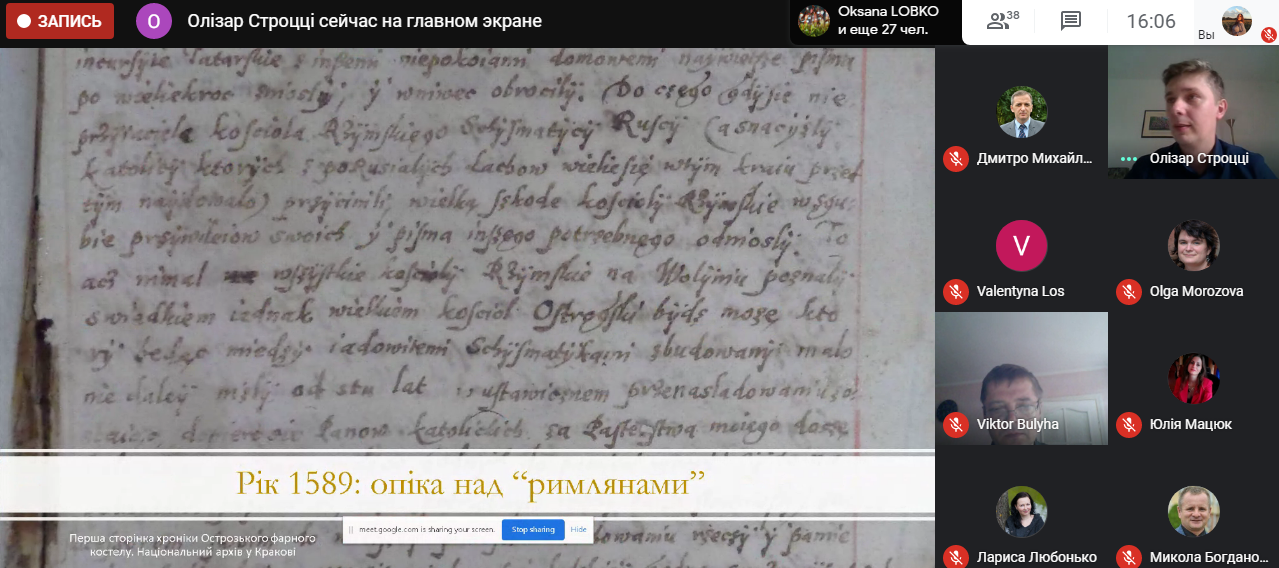 ЗАПИСЬ
О
Олізар Строцці сейчас на главном экране
Oksana LOBKO
и еще 27 чел.
38
16:06
Вы
incursyie Tatarskie
po wieliekroc znosły, y wniwec obrocily. Do czego gdysie nie
przyiaciele koscioła Rzymskiego Schysmatycy Ruscy (a snac y zli
Katolicy ktorych s porusialych Lachow wielie się wtym kraiu
tym naydowało) przyczinili, wielką szkode koscioly Rzymskie
bie przywileiow swoich y pisma inszego potrzebnego odniosly. To
acz nimal wszystkie koscioly Rzymskie na Wolyniu poznaly
swiadkiem iednak wielkiem kosciol Ostrogski bydz może kto
ry będąc miedzy iadowitemi Schysmatykami zbudowany malo
nie daley mszy od stu lat w ustawicznem przenasladowaniu
Panow Katolickich, za Pasterstwa moiego
rzeczy y
Рік 1589: опіка над “римлянами”
Перша сторінка хроніки Острозького фарного
костелу. Національний архів у Кракові
meet.google.com is sharing your screen.
Stop sharing
Hide
Дмитро Михайл...
Олізар Строцці
V
Valentyna Los
Olga Morozova
Viktor Bulyha
Юлія Мацюк
Лариса Любонько
Микола Богдано...